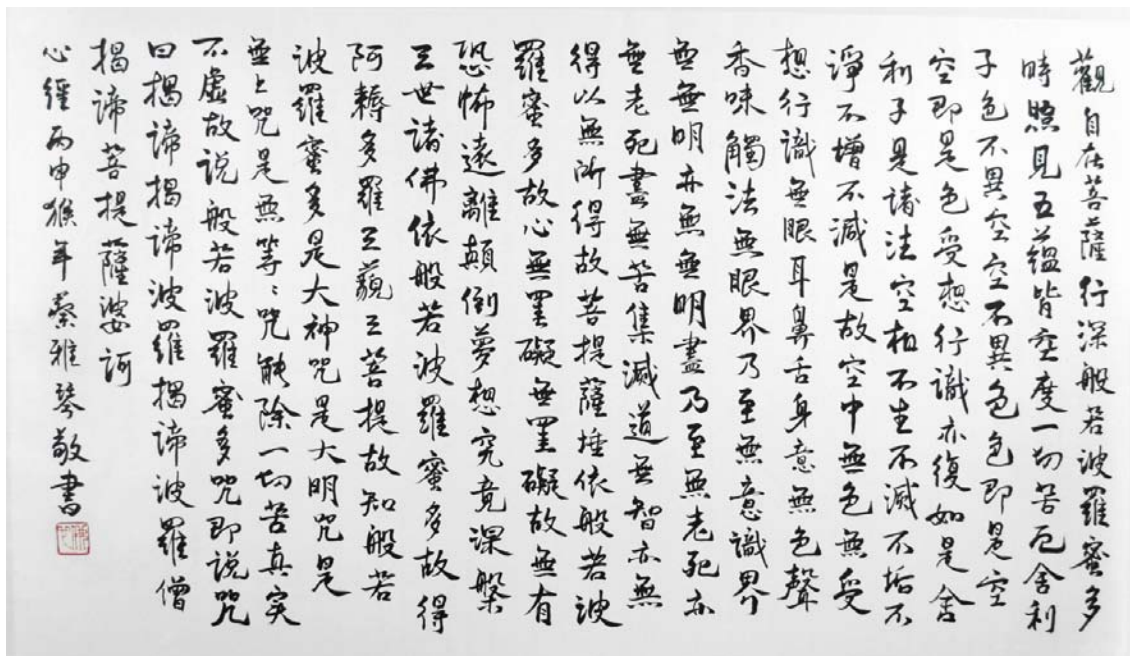 觀自在菩薩行深般若波羅蜜多
時照見五蘊皆空度一切苦厄舍利
子色不異空空不異色色即是空
空即是色受想行識亦復如是舍
利子是諸法空相不生不滅不垢不
淨不增不減是故空中無色無受
想行識無眼耳鼻舌身意無色聲
香味觸法無眼界乃至無意識界
無無明亦無無明盡乃至無老死亦
無老死盡無苦集滅道無智亦無
得以無所得故菩提薩埵依般若波
羅蜜多故心無罣礙無罣礙故無有
恐怖遠離顛倒夢想究竟涅槃
三世諸佛依般若波羅蜜多故得
阿耨多羅三藐三菩提故知般若
波羅蜜多是大神咒是大明咒是
無上咒是無等〻咒能除一切苦真实
不虛故說般若波羅蜜多咒即說咒
曰揭諦揭諦波羅揭諦波羅僧
揭諦菩提薩婆訶
心經丙申猴年蔡雅琴敬書